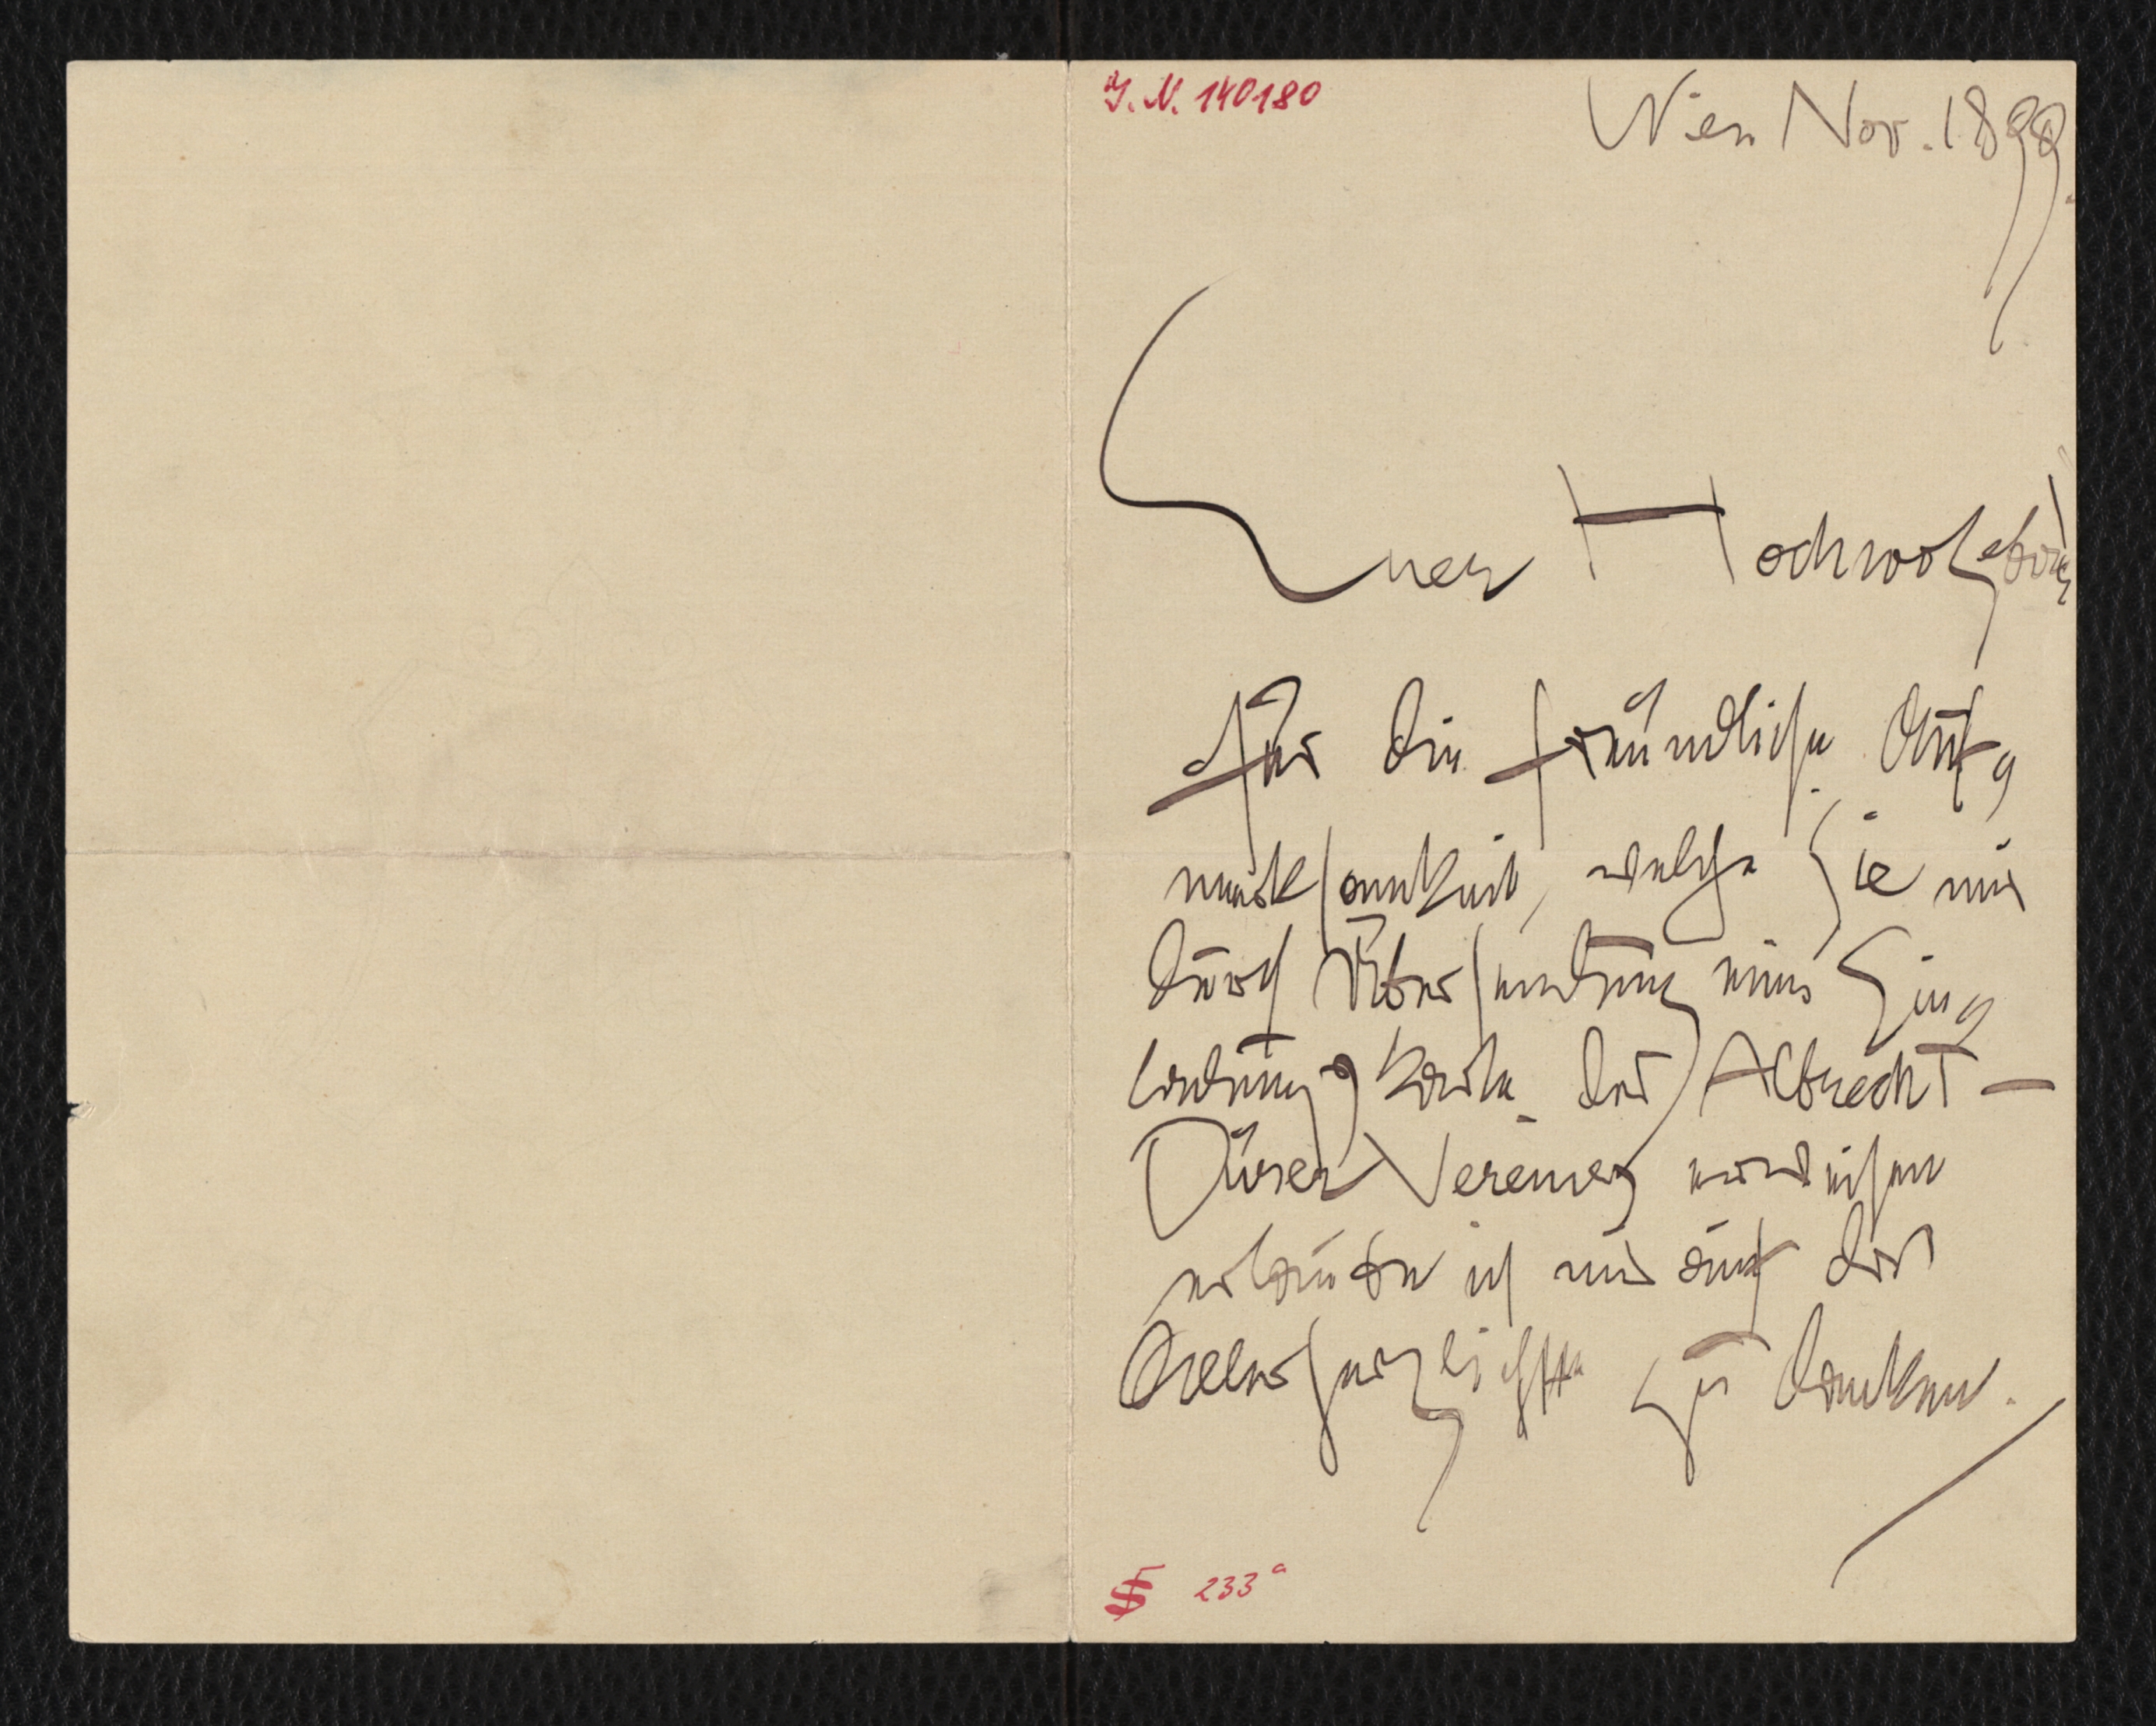 J. N. 140180
Wien Nov. 1899.
Euer Hochwolgeboren
Für die freundliche Auf-
merksamkeit, welche Sie mir
durch Übersendung einer Ein-
ladungskarte des Albrecht-
Dürer Vereines erwiesen
erlaube ich mir auf das
Allerherzlichste zu danken.
233a